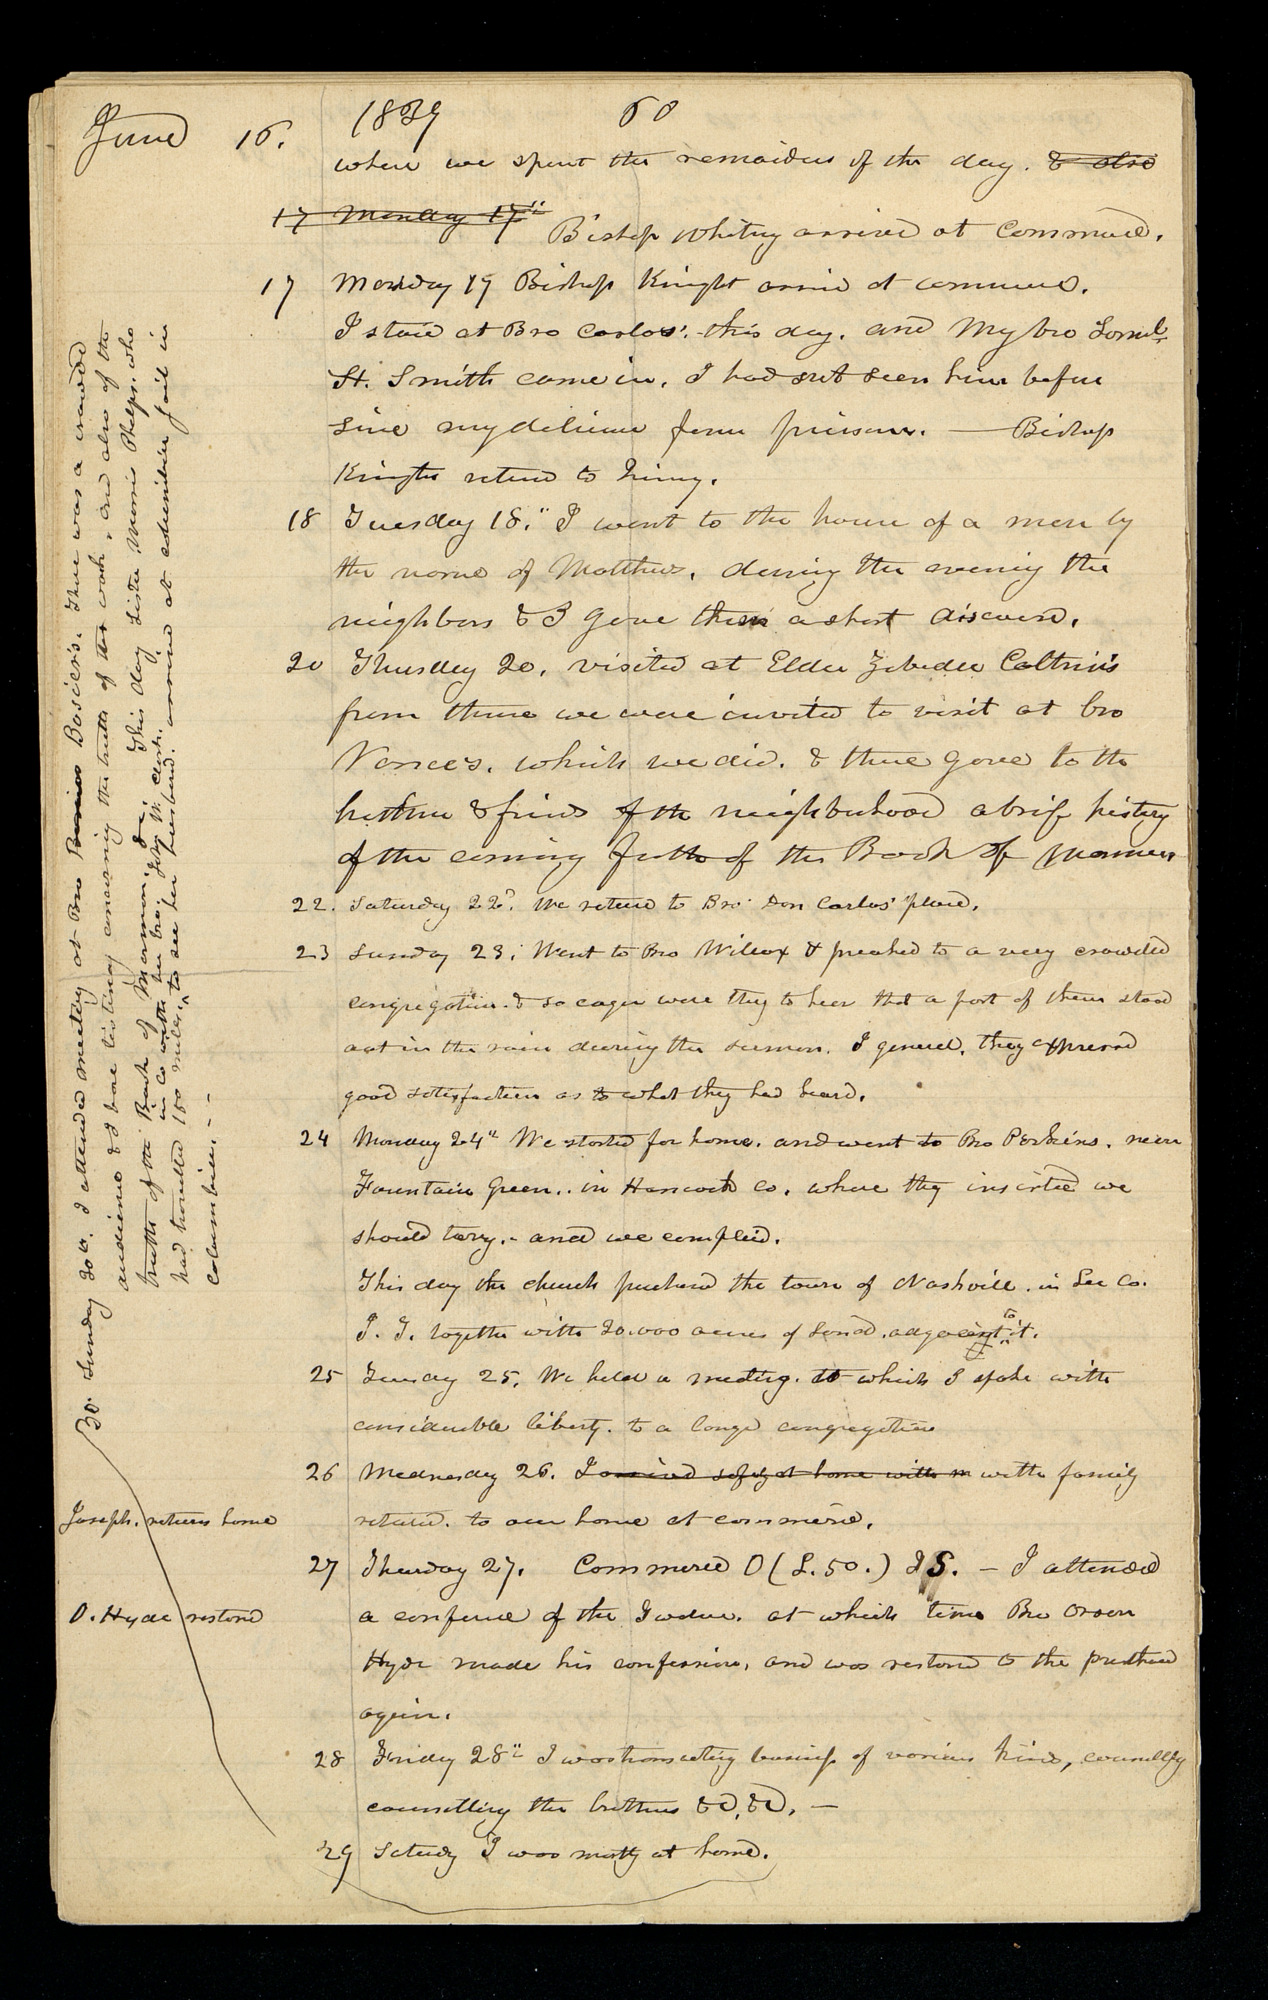 June 16. 1839 60
where we spent the remainder of the day. & also
17 Monday 17th Bishop Whitny arrived at Commerce.
17 Monday 17 Bishop Knight arrivd at commerce.
I staid at Bro Carlos'. this day. and My bro Saml.
H. Smith came in, I had not seen him before
since my deliverance from prison. — Bishop
Knight returnd to Quincy.
18 Tuesday 18." I went to the house of a man by
the name of Matthews. during the evening the
neighbors & I gave them a short discourse.
20 Thursday 20. visited at Elder Zebedee Coltrin's
from thence we were invited to visit at bro
Vance's. which we did. & there gave to the
brethren & friends of the neighborhood a brief history
of the coming forth of the Book of Mormon
22. Saturday 22d. We returnd to Bro Don Carlos' place.
23 Sunday 23. Went to Bro Wilcox & preached to a very crowded
congregation. & so eager were they to hear that a part of them stood
out in the rain during the sermon. I general, they expressed
good satisfaction as to what they had heard.
24 Monday 24" We started for home. and went to Bro Perkins. near
Fountain Green.. in Hancock Co. where they insisted we
should tarry.- and we complied.
This day the church purchased the town of Nashville. in Lee Co.
I. T. together with 20.000 acres of Land. adjacent to it.
25 Tuesday 25. We held a meeting. at which I spoke with
considerable liberty. to a large congregation
26 Wednesday 26. I arrived safely at home with m with family
returnd. to our home at commerce.
27 Thursday 27. Commerce O (L. 50.) S. — I attended
a conference of the Twelve. at which time Bro Orson
Hyde made his confession. and was restored to the priesthood
again.
28 Friday 28" I was transacting business of various kinds, counselling
counselling the brethren &c, &c. —
29 Saturday I was mostly at home.
30. Sunday 30th. I attended meeting at Bro Bosier's. There was a crowded
audience & I bore testimony concerning the truth of this work, and also of the
truth of the Book of Mormon. &c. This day Sister Morris Phelps. who
in co with her bro. John W. Clark.
had travelled 150 miles, to see her husband. arrived at columbia jail in
columbia. - -
Joseph. returns home
O. Hyde restored